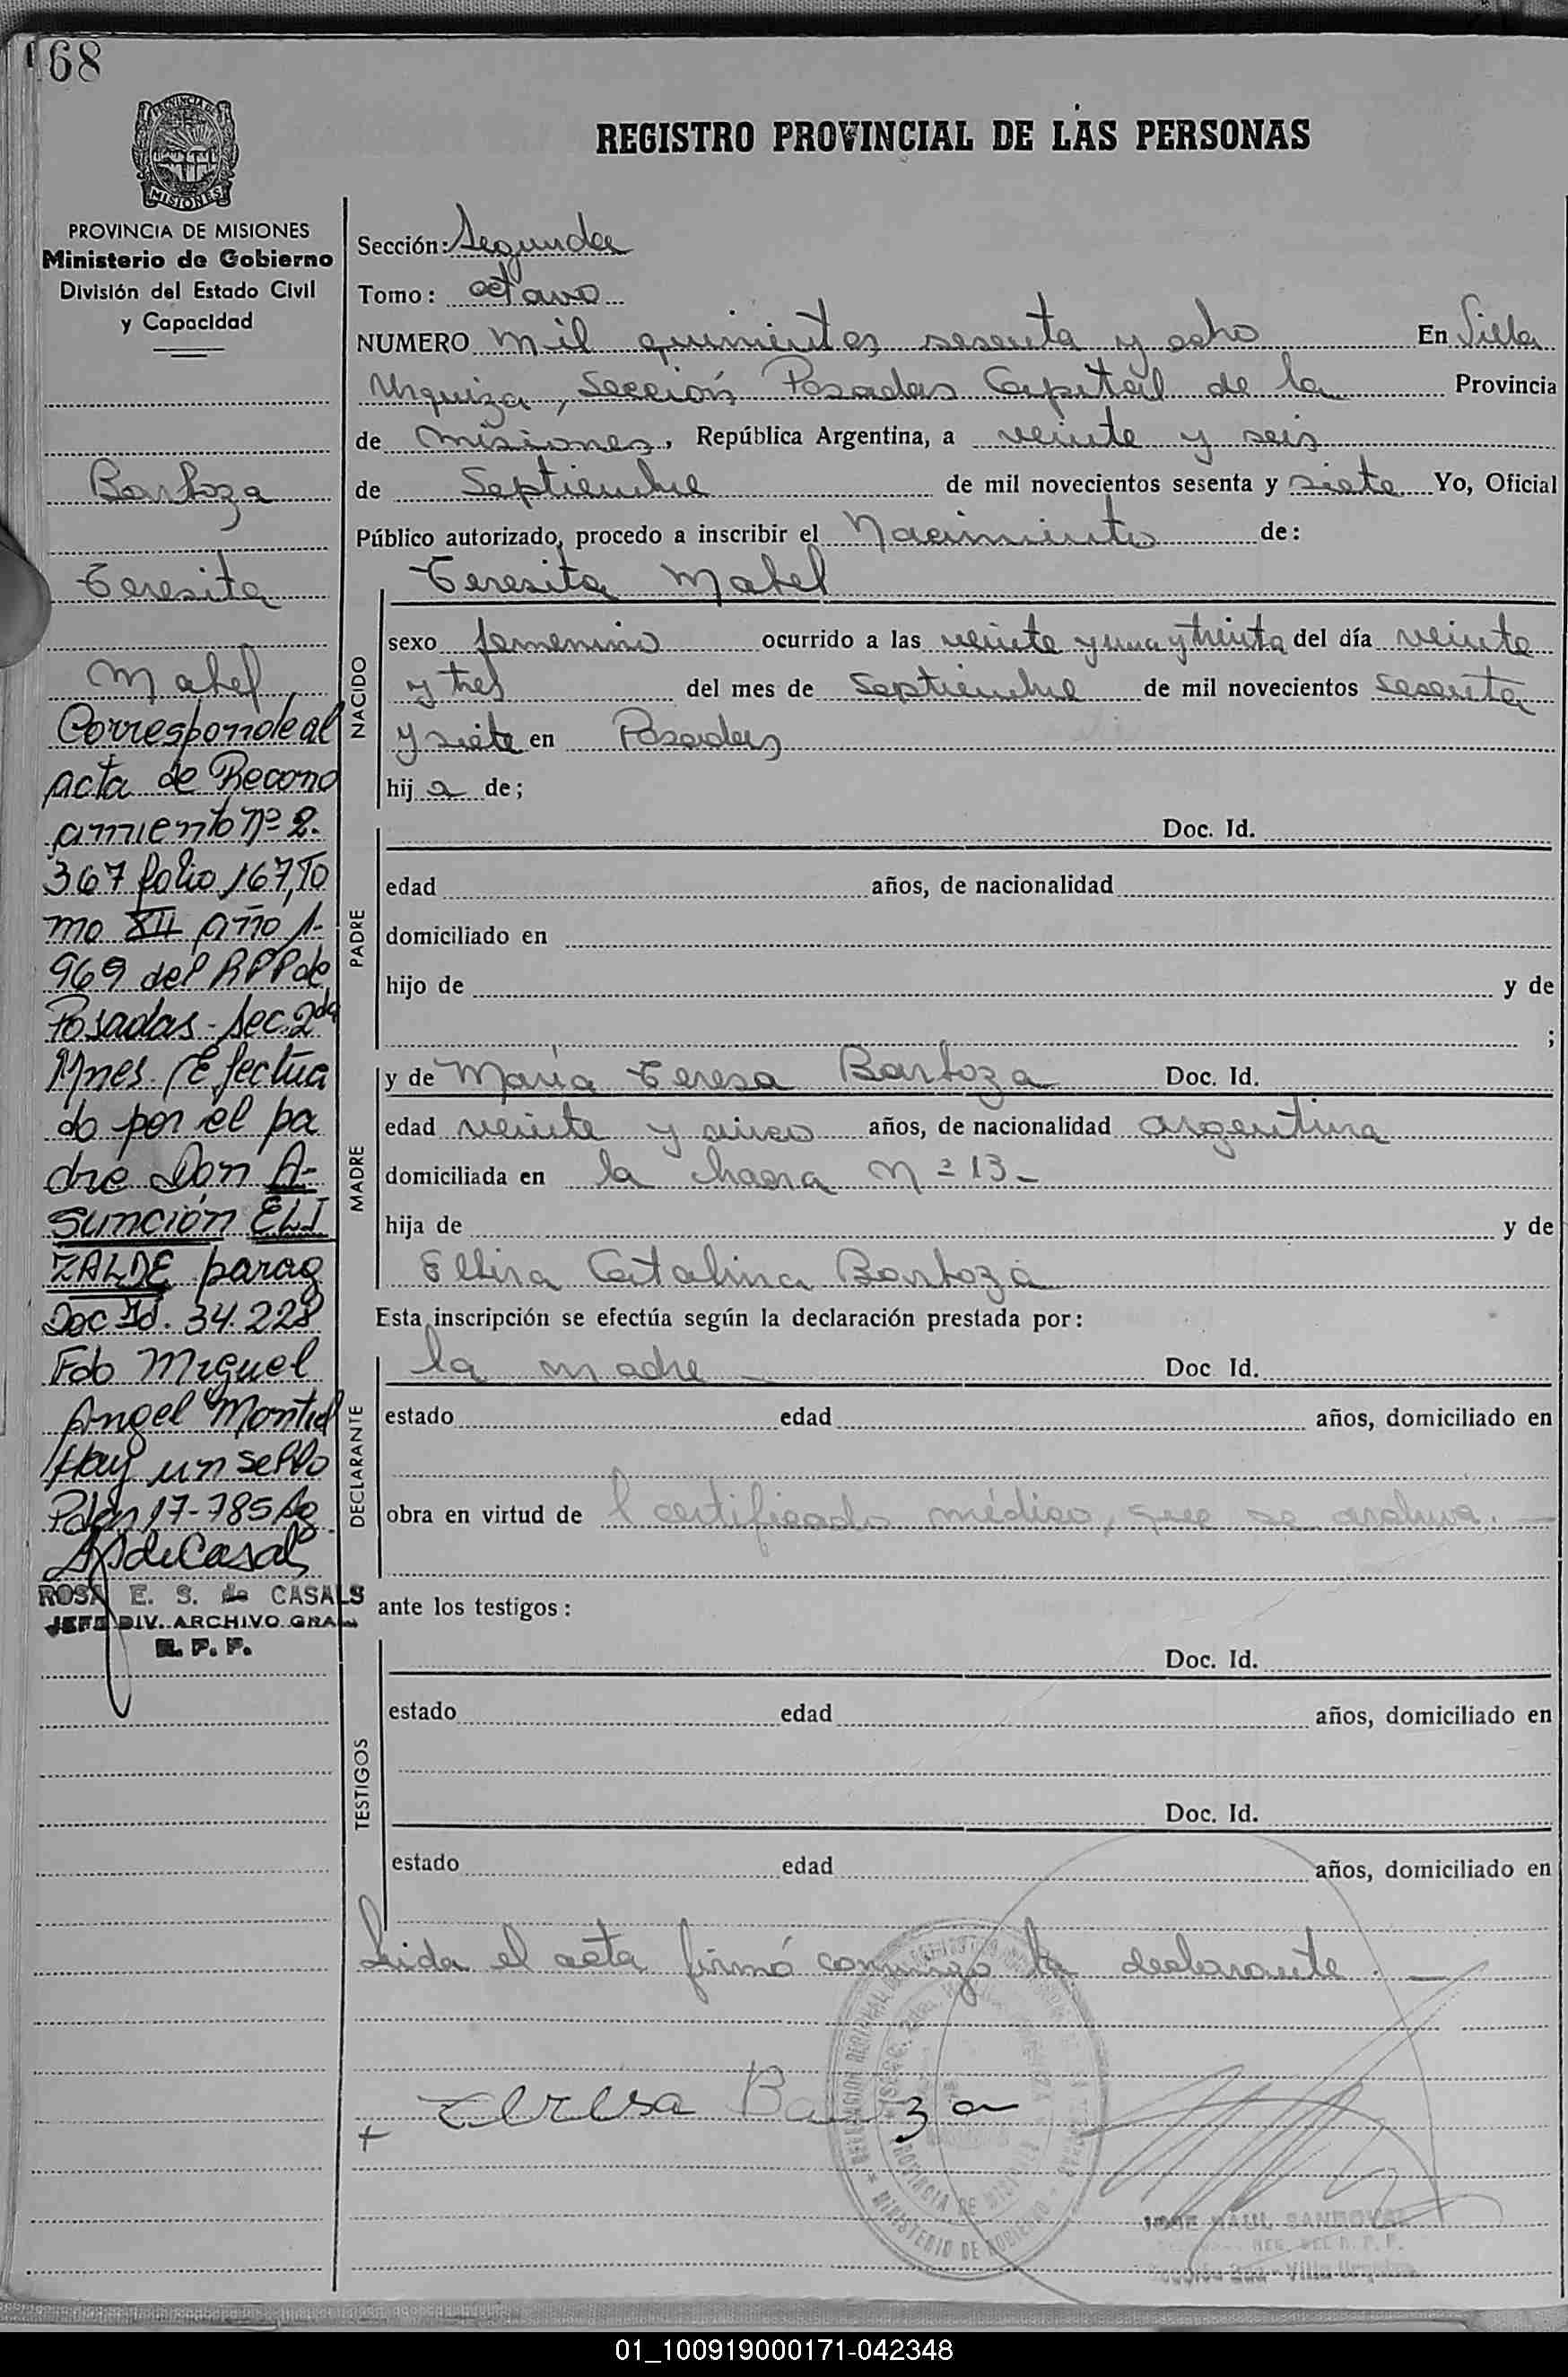 168
PROVINCIA DE
MISIONES
PROVINCIA DE MISIONES
Ministerio de Gobierno
División del Estado Civil
y Capacidad
Barboza
Teresita
Mabel
Corresponde al
acta de Recono
cimiento nº 2.
367 folio 167, To
mo XII año 1-
969 del RPP de
Posadas - Sec. 2da
Mnes. Efectua
do por el pa
dre Don A-
sunción ELI
ZALDE parag
Doc Id. 34.228
Fdo Miguel
Angel Montiel
Hay un sello
17-785
ROSA E. S. de CASALS
JEFE DIV. ARCHIVO GRAL
R. P. P.
REGISTRO PROVINCIAL DE LAS PERSONAS
Sección: Segunda
Tomo: octavo
NUMERO mil quinientos sesenta y ocho En Villa
Urquiza, Sección Posadas Capital de la Provincia
de Misiones, República Argentina, a veinte y seis
de Septiembre de mil novecientos sesenta y siete Yo, Oficial
Público autorizado, procedo a inscribir el Nacimiento de:
Teresita Mabel
NACIDO
sexo femenino ocurrido a las veinte y una y treinta del día veinte
y tres del mes de Septiembre de mil novecientos sesenta
y siete en Posadas
hij a de;
PADRE
Doc. Id.
edad años, de nacionalidad
domiciliado en
hijo de y de
;
MADRE
y de María Teresa Barboza Doc. Id.
edad veinte y cinco años, de nacionalidad argentina
domiciliada en la chacra Nº 13-
hija de y de
Elvira Catalina Barboza
Esta inscripción se efectúa según la declaración prestada por:
DECLARANTE
la madre - Doc Id.
estado edad años, domiciliado en
obra en virtud de l certificado médico, que se archiva. -
ante los testigos:
TESTIGOS
Doc. Id.
estado edad años, domiciliado en
Doc. Id.
estado edad años, domiciliado en
Leida el acta firmó conmigo la declarante. -
Teresa Barboza
PROVINCIA DE MISIONES
MINISTERIO DE GOBIERNO
JOSE RAUL SANDOVAL
REG. DEL R. P. P.
Sección 2da - Villa Urquiza
01_100919000171-042348